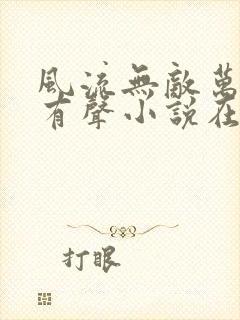 風流無敵萬
有聲小說在
打眼